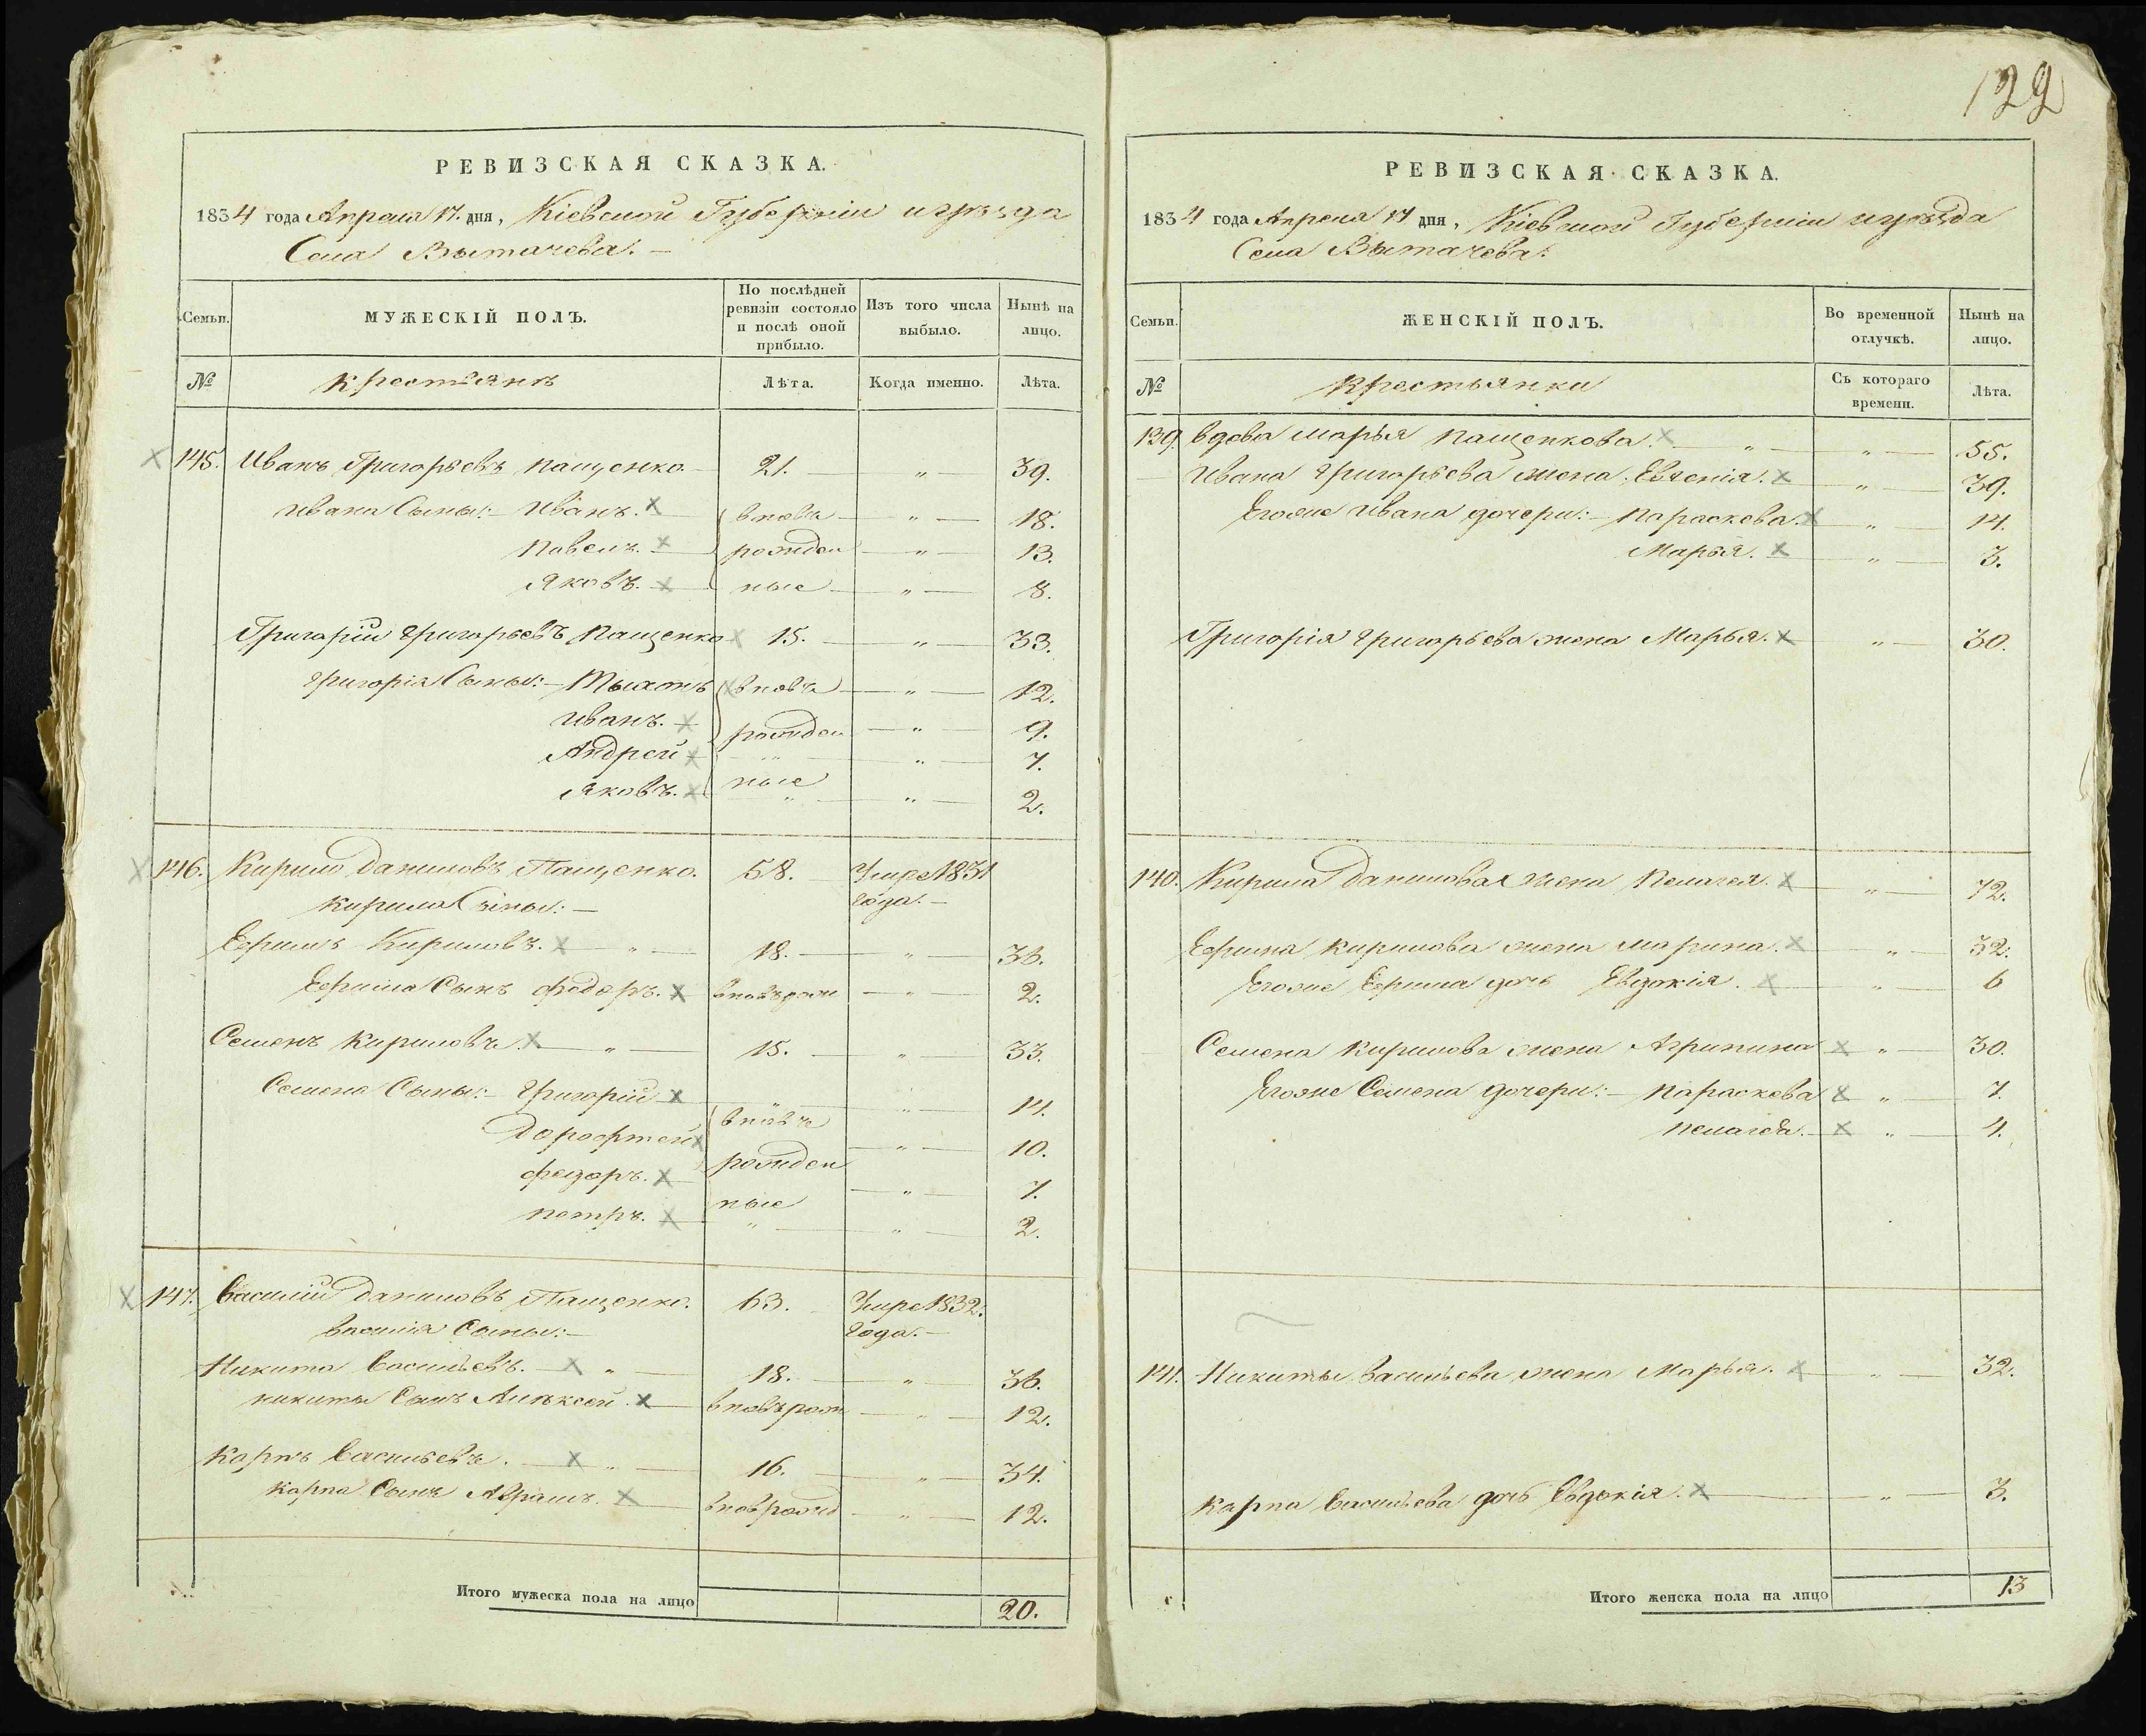 РЕВИЗСКАЯ СКАЗКА.
1834 года Апреля 17. дня, Кіевской Губерніи и уѣзда
Села Вытачева. —
Семьи.
МУЖЕСКІЙ ПОЛЪ.
По послѣдней ревизіи состояло и послѣ оной прибыло.
Изъ того числа выбыло.
Нынѣ на лицо.
№ крестьянъ Лѣта. Когда именно. Лѣта.
145. Иванъ Григорьевъ Пащенко. — 21. — „ — 39.
Ивана Сыны: — Иванъ. х вновь — „ — 18.
Павелъ. х рожден — „ — 13.
Яковъ. х ные — „ — 8.
Григорій Григорьевъ Пащенко х 15. — „ — 33.
Григорія Сыны: — Тыхонъ х вновь — „ — 12.
Иванъ. х рожден — „ — 9.
Андрей х „ — „ — 7.
Яковъ. х ные „ — „ — 2.
146. Кирило Даниловъ Пащенко. 58. — Умре 1831 года. —
Кирила Сыны: —
Ефримъ Кириловъ. х „ — 18. — „ — 36.
Ефрима Сынъ Федоръ. х вновърож — „ — 2.
Семенъ Кириловъ. х „ — 15. — „ — 33.
Семена Сыны: — Григорій х „ — „ — 14.
Дорофтей х вновь — „ — 10.
Федоръ. х рожден — „ — 7.
Петръ. х ные „ — „ — 2.
147. Василій Даниловъ Пащенко. 63. — Умре 1832. года. —
Василія Сыны: —
Никита Васильевъ. — х „ — 18. — „ — 36.
Никиты Сынъ Алѣксей. х вновърож — „ — 12.
Карпъ Васильевъ. — х „ — 16. — „ — 34.
Карпа Сынъ Абрамъ. х вноврожд — „ — 12.
Итого мужеска пола на лицо 20.
122
РЕВИЗСКАЯ СКАЗКА.
1834 года Апреля 17 дня, Кіевской Губерніи и уѣзда
Села Вытачева.
Семьи.
ЖЕНСКІЙ ПОЛЪ.
Во временной отлучкѣ.
Нынѣ на лицо.
№ крестьянки Съ котораго времени. Лѣта.
139. Вдова Марья Пащенкова. х — „ — „ — 55.
Ивана Григорьева жена: Евгенія. х — „ — 39.
Егоже Ивана дочери: — Параскева. х „ — 14.
Марья. х — „ — 3.
Григорія Григорьева жена Марья. х „ — 30.
140. Кирила Данилова жена Пелагея. х — „ — 72.
Ефрима Кирилова жена Марина. х — „ — 32.
Егоже Ефрима дочь Евдокія. х — „ — 6
Семена Кирилова жена Агрипина х „ — 30.
Егоже Семена дочери: — Параскева х „ — 7.
Пелагея. — х „ — 4.
141. Никиты Васильева жена Марья. х — „ — 32.
Карпа Васильева дочь Евдокія. х — „ — 3.
Итого женска пола на лицо 13